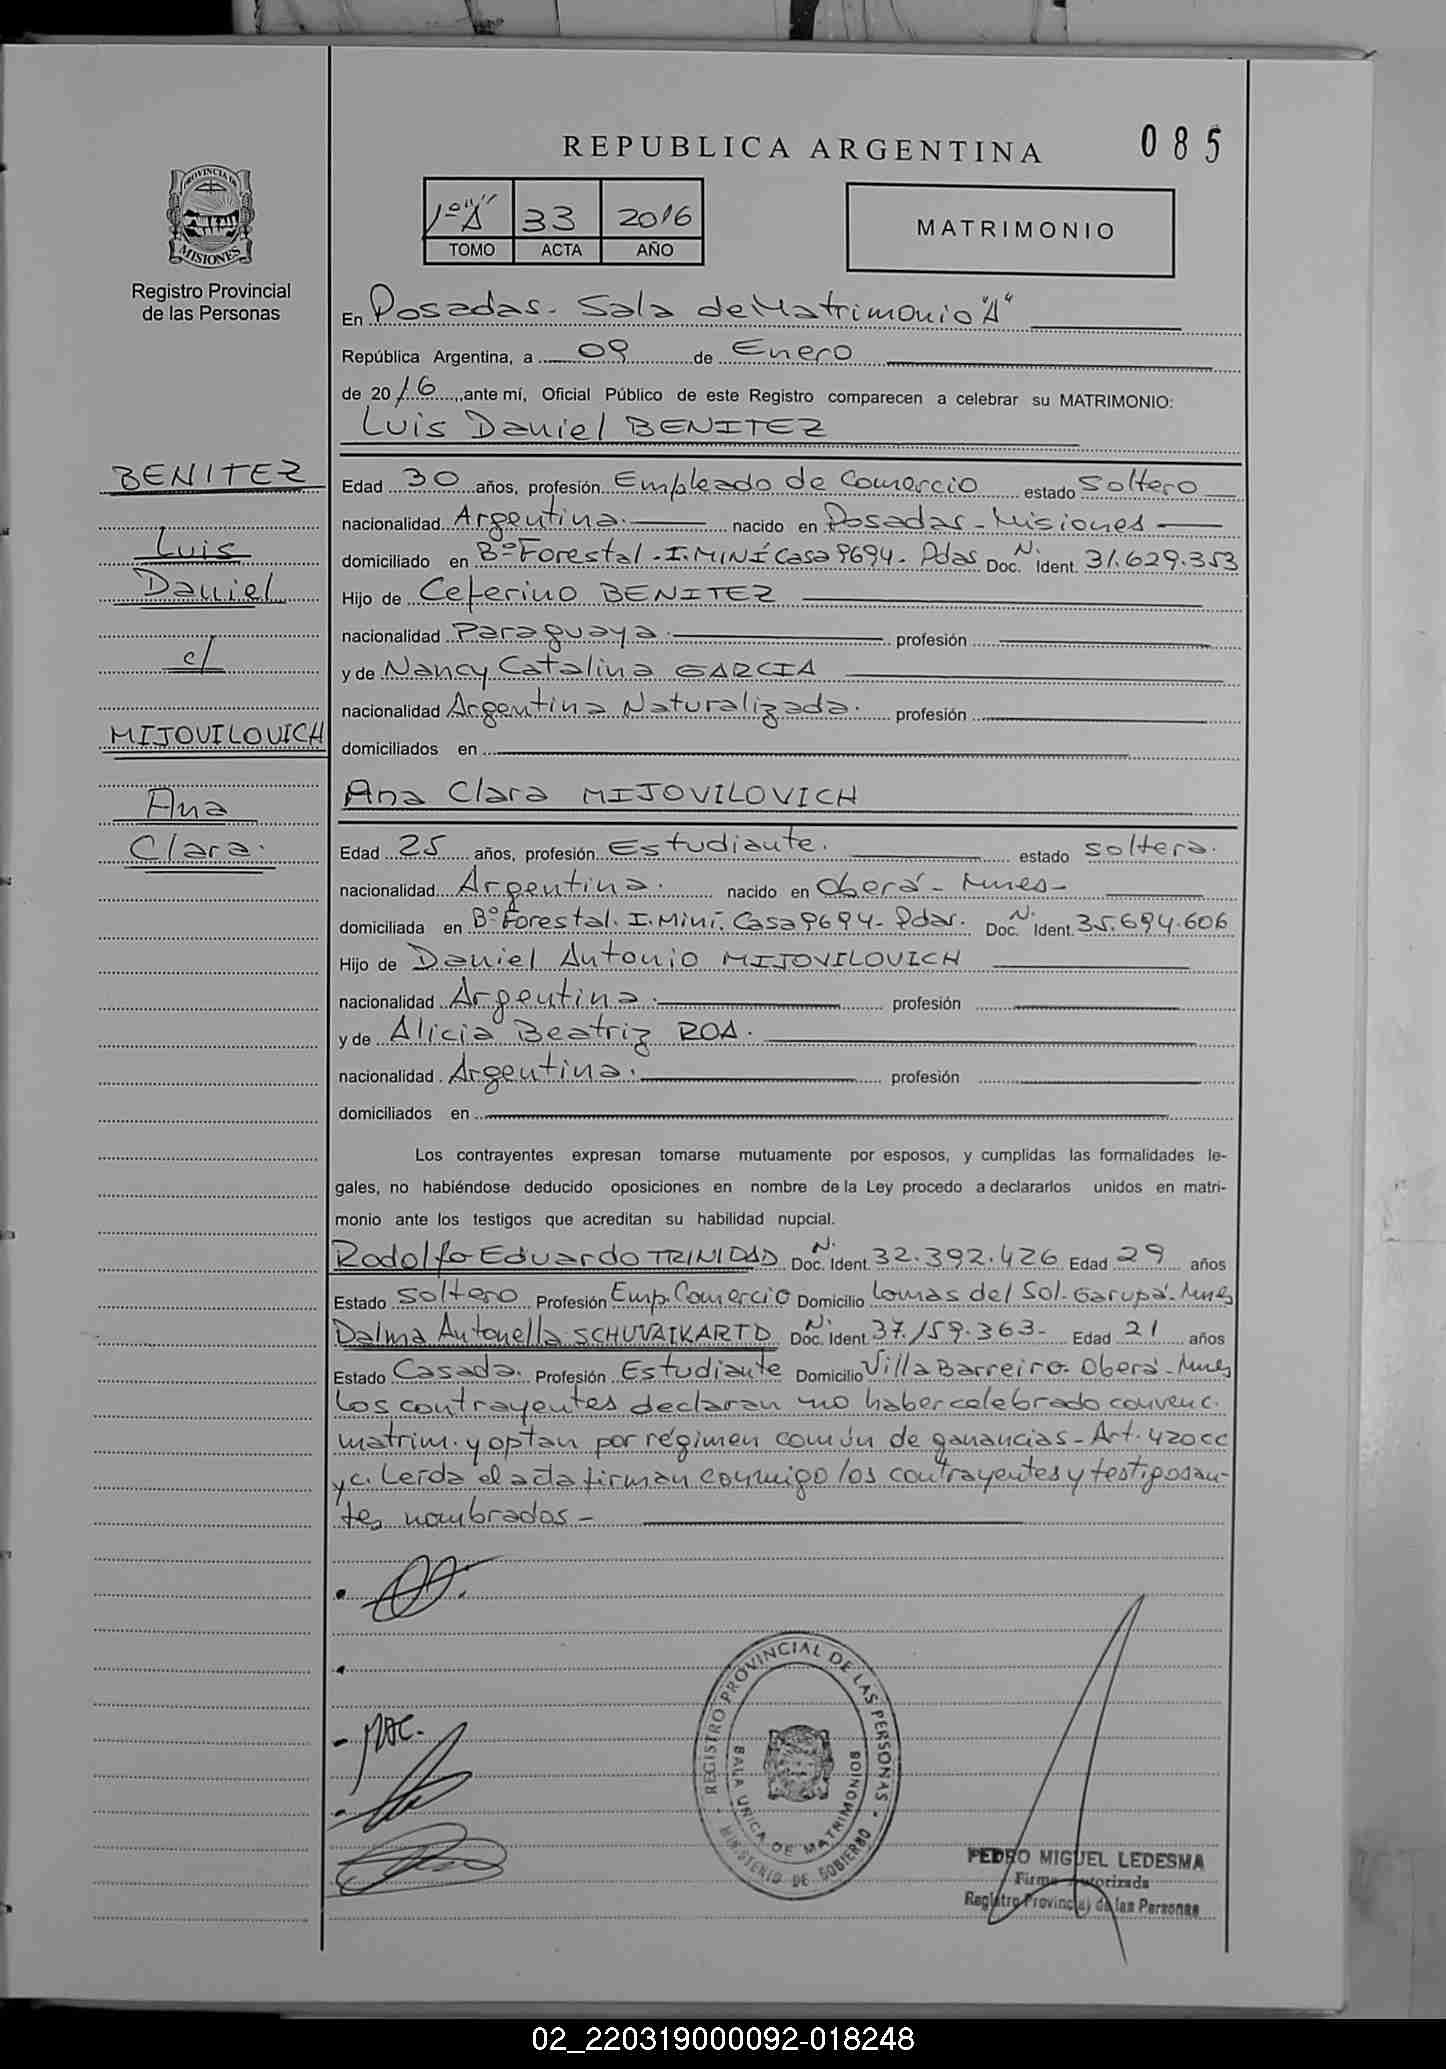 REPUBLICA ARGENTINA
085
PROVINCIA DE MISIONES
Registro Provincial
de las Personas
1º "A" 33 2016
TOMO ACTA AÑO
MATRIMONIO
En Posadas - Sala de Matrimonio "A"
República Argentina, a 09 de Enero
de 2016, ante mí, Oficial Público de este Registro comparecen a celebrar su MATRIMONIO:
Luis Daniel BENITEZ
BENITEZ
Luis
Daniel
c/
MIJOVILOVICH
Ana
Clara.
Edad 30 años, profesión Empleado de Comercio estado Soltero
nacionalidad Argentina. nacido en Posadas - Misiones
domiciliado en Bº Forestal - I. MINÍ Casa 9694 - Pdas Doc. N. Ident. 31.629.353
Hijo de Ceferino BENITEZ
nacionalidad Paraguaya. profesión
y de Nancy Catalina GARCIA
nacionalidad Argentina Naturalizada. profesión
domiciliados en
Ana Clara MIJOVILOVICH
Edad 25 años, profesión Estudiante. estado soltera.
nacionalidad Argentina. nacido en Oberá - Mnes -
domiciliada en Bº Forestal. I. Miní. Casa 9694 - Pdas. Doc. N. Ident. 35.694.606
Hijo de Daniel Antonio MIJOVILOVICH
nacionalidad Argentina. profesión
y de Alicia Beatriz ROA.
nacionalidad Argentina. profesión
domiciliados en
Los contrayentes expresan tomarse mutuamente por esposos, y cumplidas las formalidades le-
gales, no habiéndose deducido oposiciones en nombre de la Ley procedo a declararlos unidos en matri-
monio ante los testigos que acreditan su habilidad nupcial.
Rodolfo Eduardo TRINIDAD Doc. N. Ident. 32.392.426 Edad 29 años
Estado Soltero Profesión Emp. Comercio Domicilio Lomas del Sol - Garupá - Mnes
Dalma Antonella SCHUVAIKARTD Doc. N. Ident. 37.159.363 - Edad 21 años
Estado Casada. Profesión Estudiante Domicilio Villa Barreiro - Oberá - Mnes
Los contrayentes declaran no haber celebrado convenc.
matrim. y optan por régimen común de ganancias - Art. 420 CC
y C. Leída el acta firman conmigo los contrayentes y testigos an-
tes nombrados -
REGISTRO PROVINCIAL DE LAS PERSONAS
SALA UNICA DE MATRIMONIOS
MINISTERIO DE GOBIERNO
PEDRO MIGUEL LEDESMA
Firma Autorizada
Registro Provincial de las Personas
02_220319000092-018248